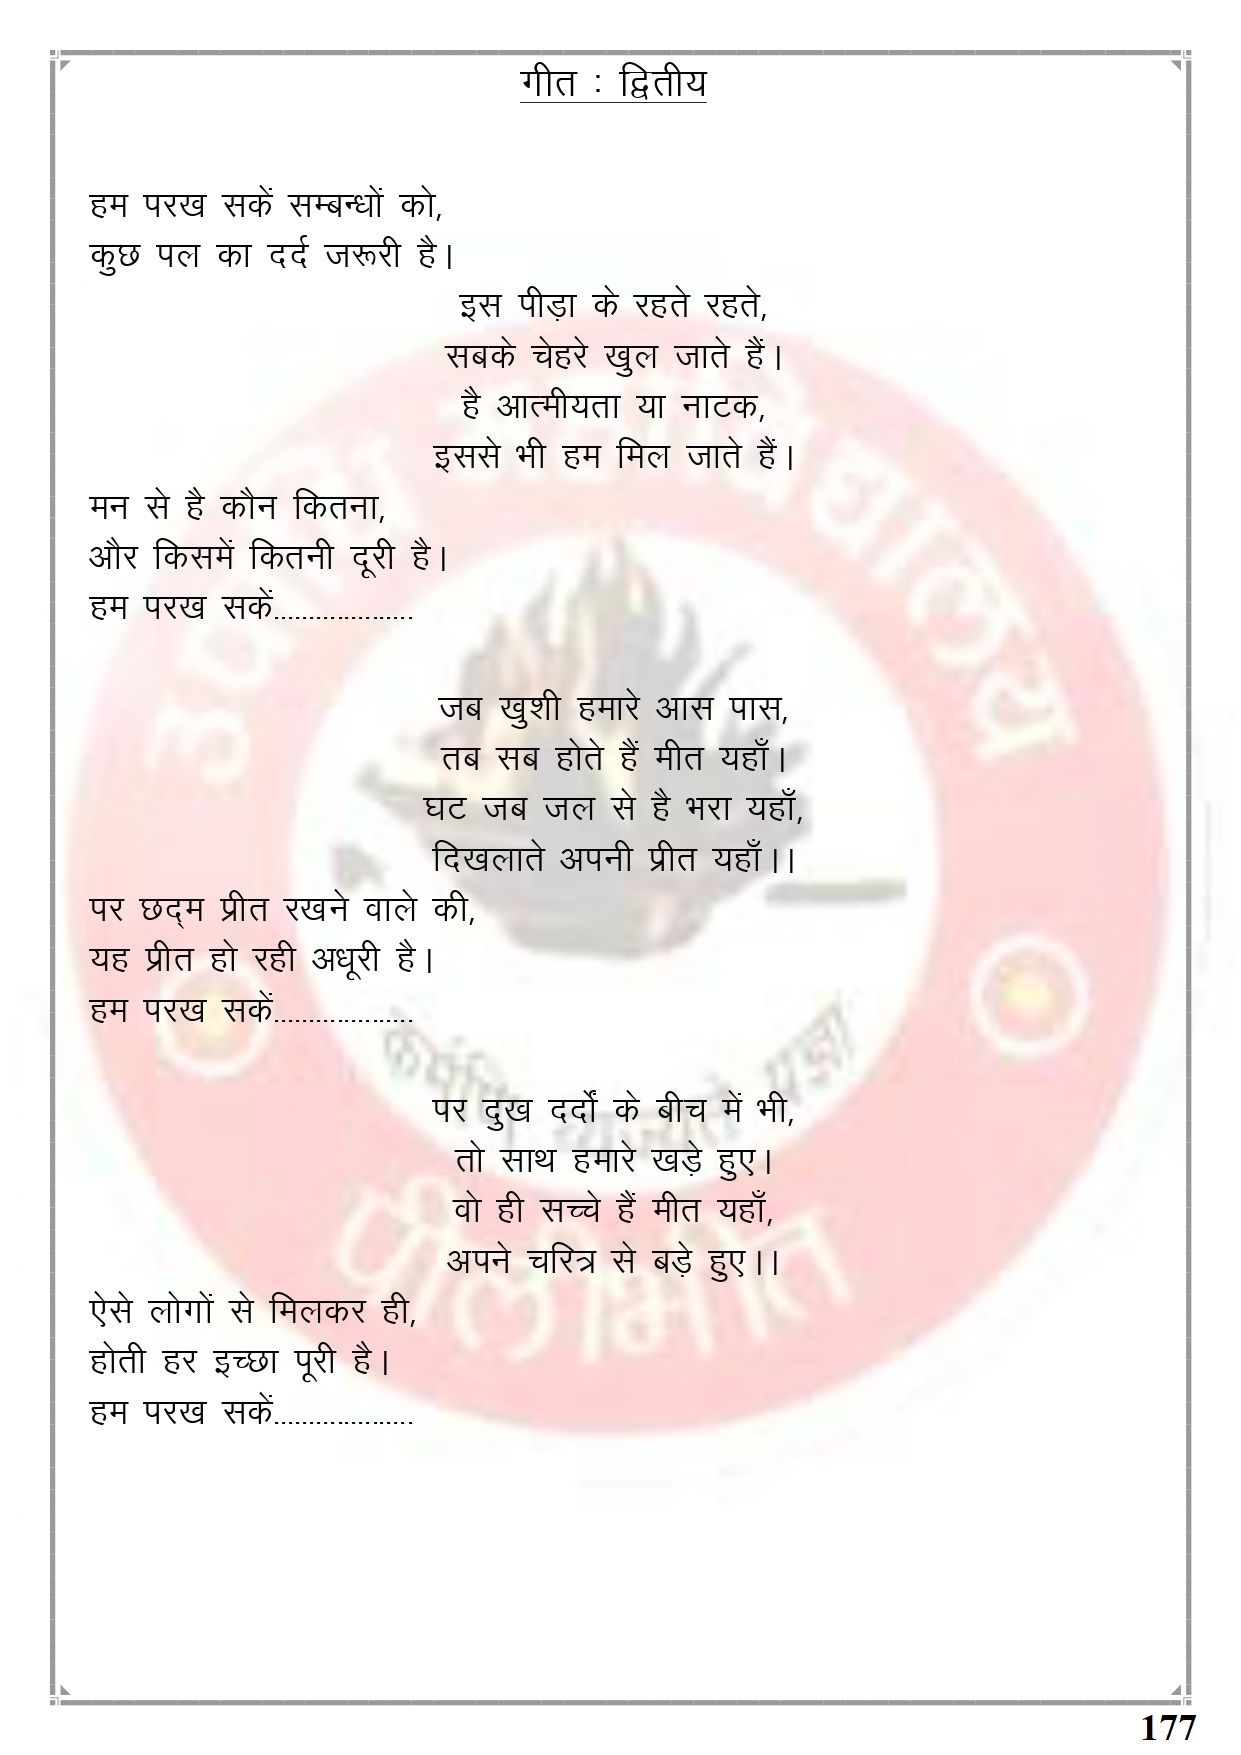 गीत : द्वितीय
हम परख सकें सम्बन्धों को,
कुछ पल का दर्द जरूरी है।
इस पीड़ा के रहते रहते,
सबके चेहरे खुल जाते हैं।
है आत्मीयता या नाटक,
इससे भी हम मिल जाते हैं।
मन से है कौन कितना,
और किसमें कितनी दूरी है।
हम परख सकें....................
जब खुशी हमारे आस पास,
तब सब होते हैं मीत यहाँ।
घट जब जल से है भरा यहाँ,
दिखलाते अपनी प्रीत यहाँ।।
पर छद्म प्रीत रखने वाले की,
यह प्रीत हो रही अधूरी है।
हम परख सकें....................
पर दुख दर्दों के बीच में भी,
तो साथ हमारे खड़े हुए।
वो ही सच्चे हैं मीत यहाँ,
अपने चरित्र से बड़े हुए।।
ऐसे लोगों से मिलकर ही,
होती हर इच्छा पूरी है।
हम परख सकें....................
पीलीभीत
177